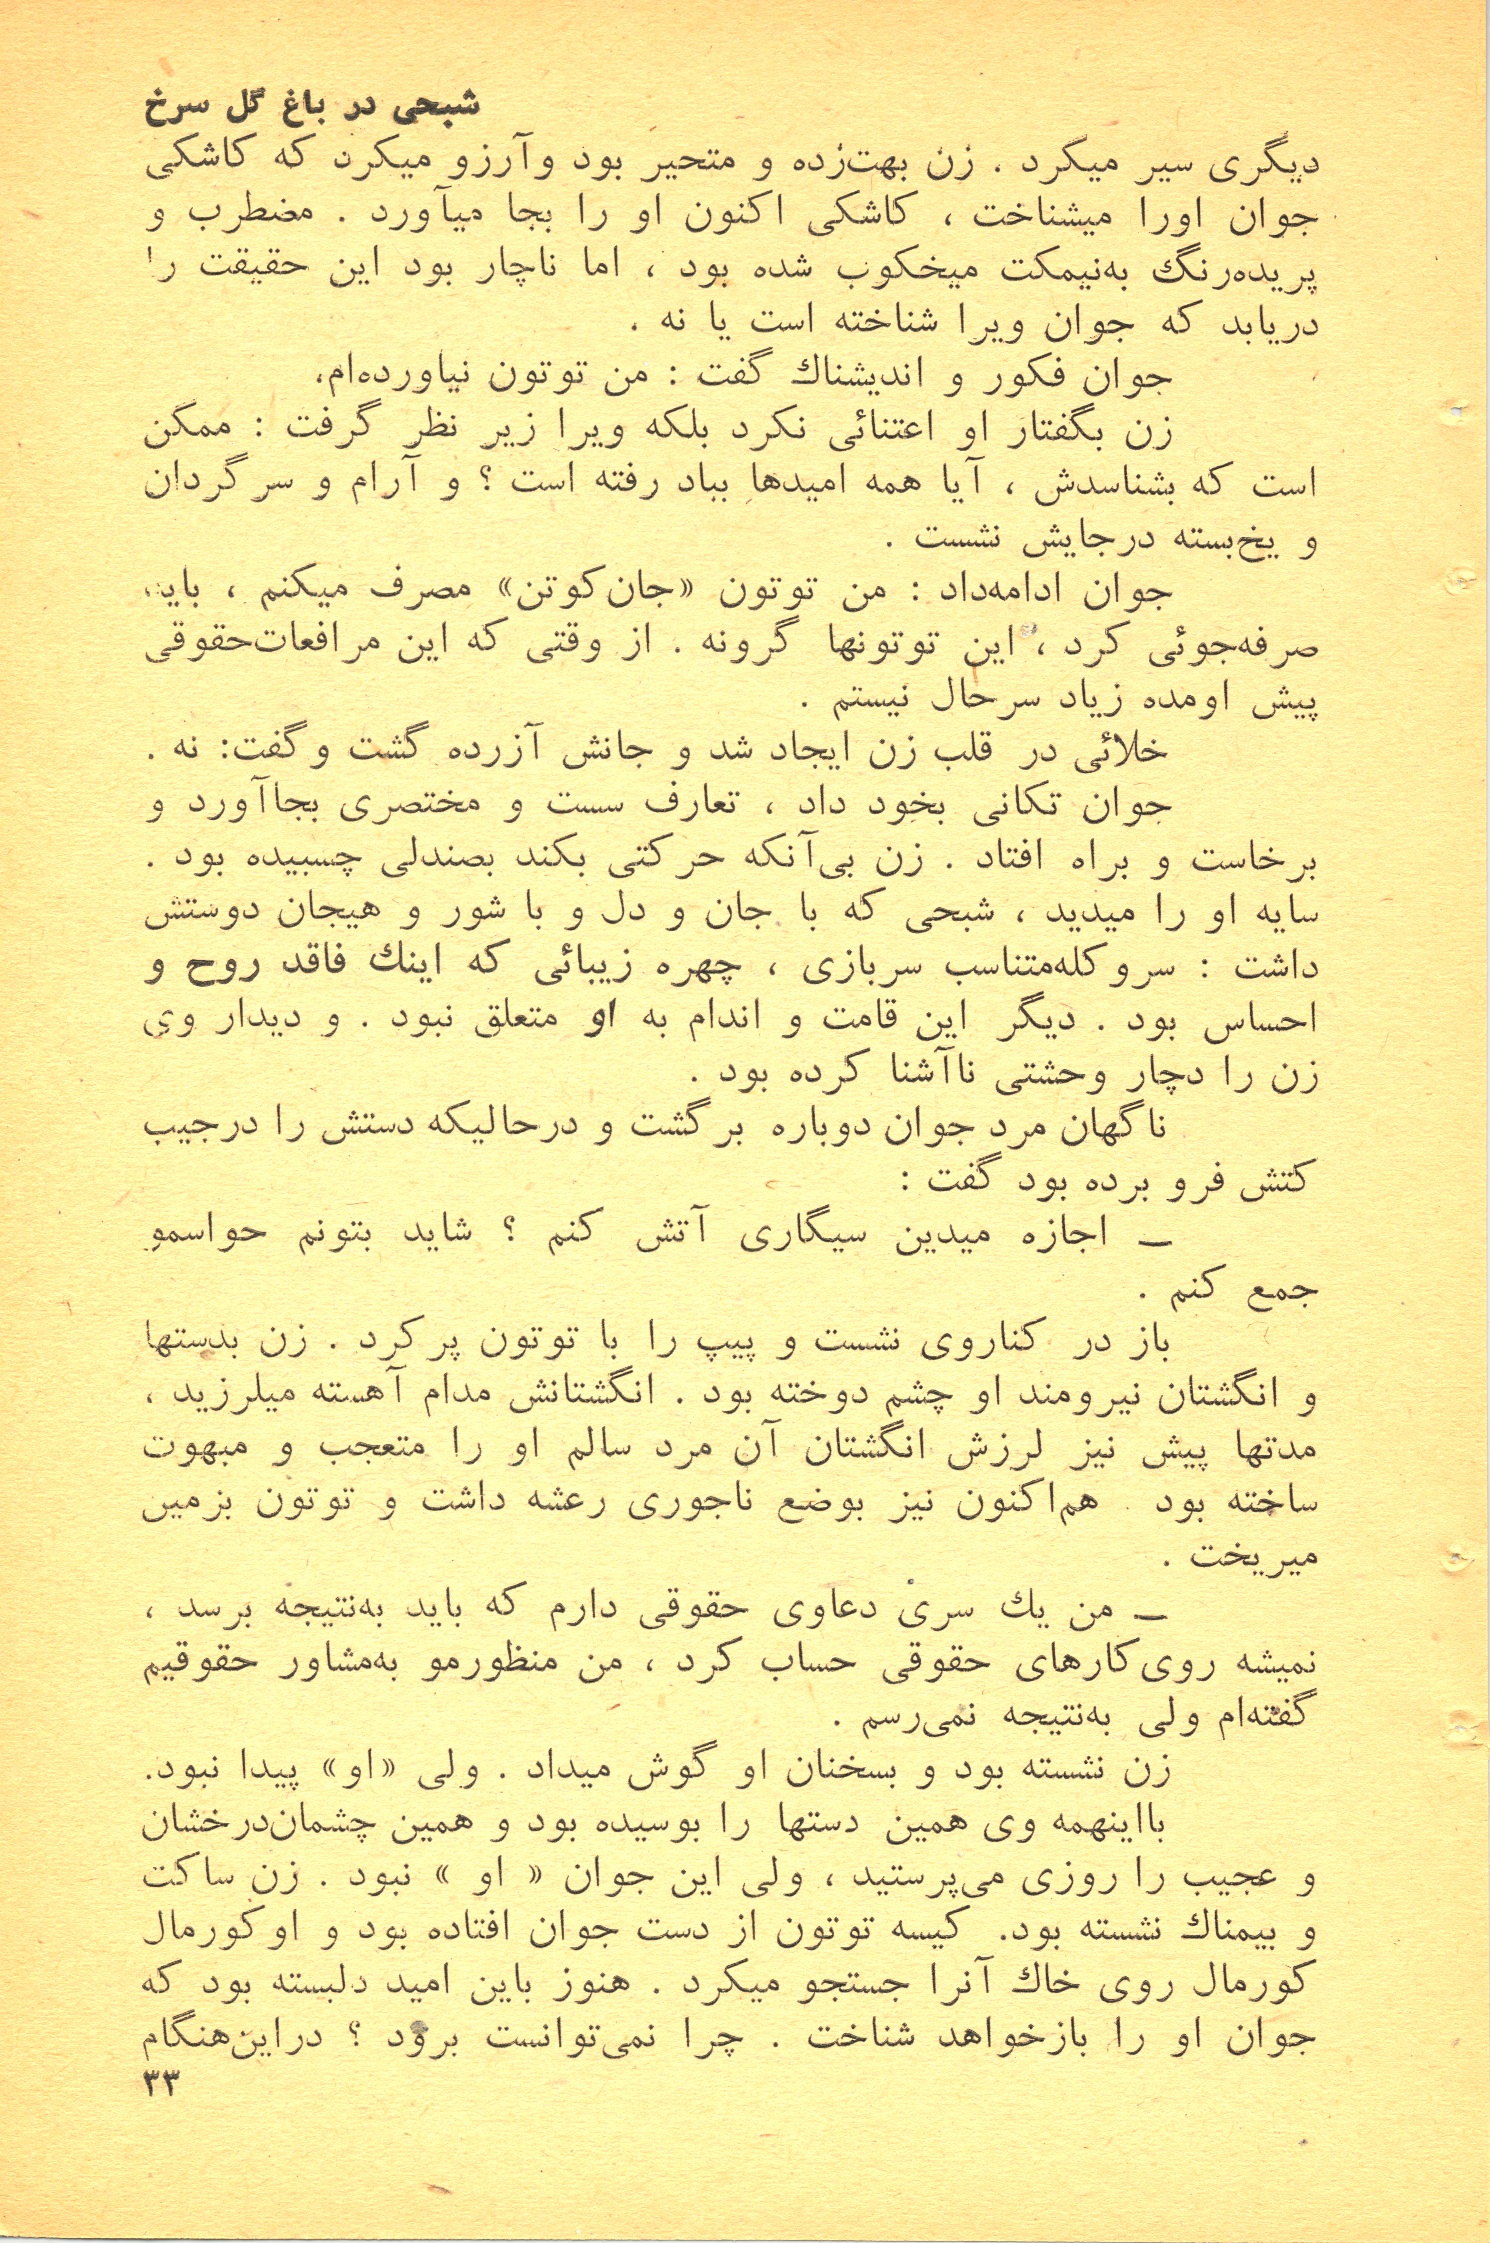 شبحی در باغ گل سرخ
دیگری سیر میکرد . زن بهت‌زده و متحیر بود وآرزو میکرد که کاشکی
جوان اورا میشناخت ، کاشکی اکنون او را بجا میآورد . مضطرب و
پریده‌رنگ به‌نیمکت میخکوب شده بود ، اما ناچار بود این حقیقت را
دریابد که جوان ویرا شناخته است یا نه .
جوان فکور و اندیشناك گفت : من توتون نیاورده‌ام،
زن بگفتار او اعتنائی نکرد بلکه ویرا زیر نظر گرفت : ممکن
است که بشناسدش ، آیا همه امیدها بباد رفته است ؟ و آرام و سرگردان
و یخ‌بسته درجایش نشست .
جوان ادامه‌داد : من توتون «جان‌کوتن» مصرف میکنم ، باید
صرفه‌جوئی کرد ، این توتونها گرونه . از وقتی که این مرافعات‌حقوقی
پیش اومده زیاد سرحال نیستم .
خلائی در قلب زن ایجاد شد و جانش آزرده گشت وگفت: نه .
جوان تکانی بخود داد ، تعارف سست و مختصری بجاآورد و
برخاست و براه افتاد . زن بی‌آنکه حرکتی بکند بصندلی چسبیده بود .
سایه او را میدید ، شبحی که با جان و دل و با شور و هیجان دوستش
داشت : سروکله‌متناسب سربازی ، چهره زیبائی که اینك فاقد روح و
احساس بود . دیگر این قامت و اندام به او متعلق نبود . و دیدار وی
زن را دچار وحشتی ناآشنا کرده بود .
ناگهان مرد جوان دوباره برگشت و درحالیکه دستش را درجیب
کتش فرو برده بود گفت :
ـ اجازه میدین سیگاری آتش کنم ؟ شاید بتونم حواسمو
جمع کنم .
باز در کناروی نشست و پیپ را با توتون پرکرد . زن بدستها
و انگشتان نیرومند او چشم دوخته بود . انگشتانش مدام آهسته میلرزید ،
مدتها پیش نیز لرزش انگشتان آن مرد سالم او را متعجب و مبهوت
ساخته بود هم‌اکنون نیز بوضع ناجوری رعشه داشت و توتون بزمین
میریخت .
ـ من یك سری دعاوی حقوقی دارم که باید به‌نتیجه برسد ،
نمیشه روی‌کارهای حقوقی حساب کرد ، من منظورمو به‌مشاور حقوقیم
گفته‌ام ولی به‌نتیجه نمی‌رسم .
زن نشسته بود و بسخنان او گوش میداد . ولی «او» پیدا نبود.
بااینهمه وی همین دستها را بوسیده بود و همین چشمان‌درخشان
و عجیب را روزی می‌پرستید ، ولی این جوان « او » نبود . زن ساکت
و بیمناك نشسته بود. کیسه توتون از دست جوان افتاده بود و اوکورمال
کورمال روی خاك آنرا جستجو میکرد . هنوز باین امید دلبسته بود که
جوان او را بازخواهد شناخت . چرا نمی‌توانست برود ؟ دراین‌هنگام
۳۳